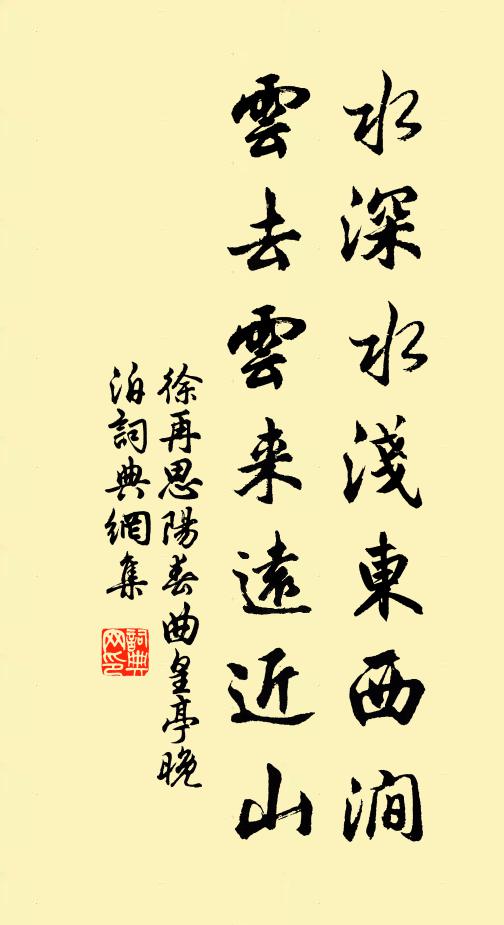 水深水淺東西澗
雲去雲来遠近山
徐再思陽春曲皇亭晚
泊詞典網集
詞典
网印